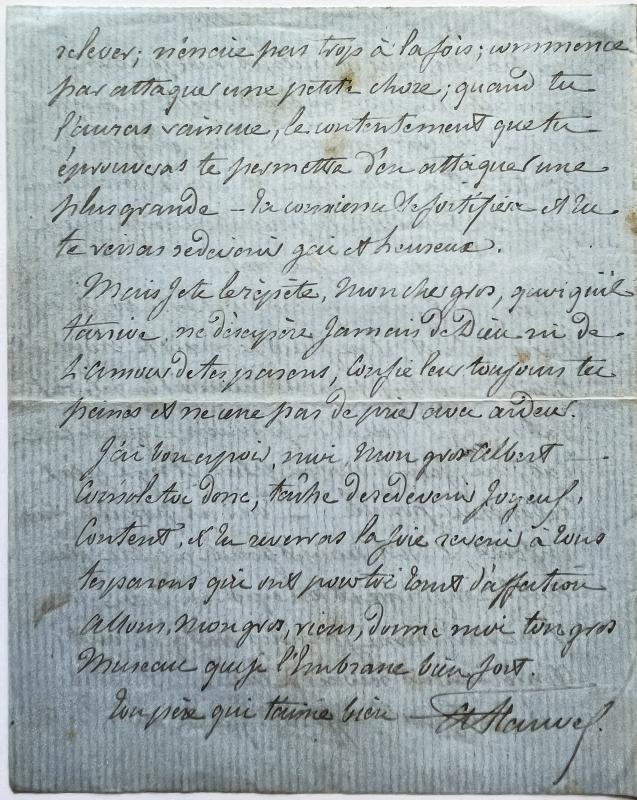 relever; n'encie pas trop à la fois; commence
par attaquer une petite chose; quand tu
l'auras vaincue, le contentement que tu
éprouveras te permettra d'en attaquer une
plus grande – ta conscience se fortifiera et tu
te verras redevenir gai et heureux.
Mais je te le répète, mon cher gros, quoiqu'il
t'arrive, ne désespère jamais de Dieu ni de
l'amour de tes parens, confie leur toujours tes
peines et ne cesse pas de prier avec ardeur.
J'ai bon espoir, moi, mon gros Albert
Console toi donc, tâche de redevenir joyeux,
Content, et tu reverras la joie revenir à tous
tes parens qui ont pour toi tant d'affection
allons, mon gros, viens, donne moi ton gros
Museau que je l'embrasse bien fort.
Ton père qui t'aime bien –